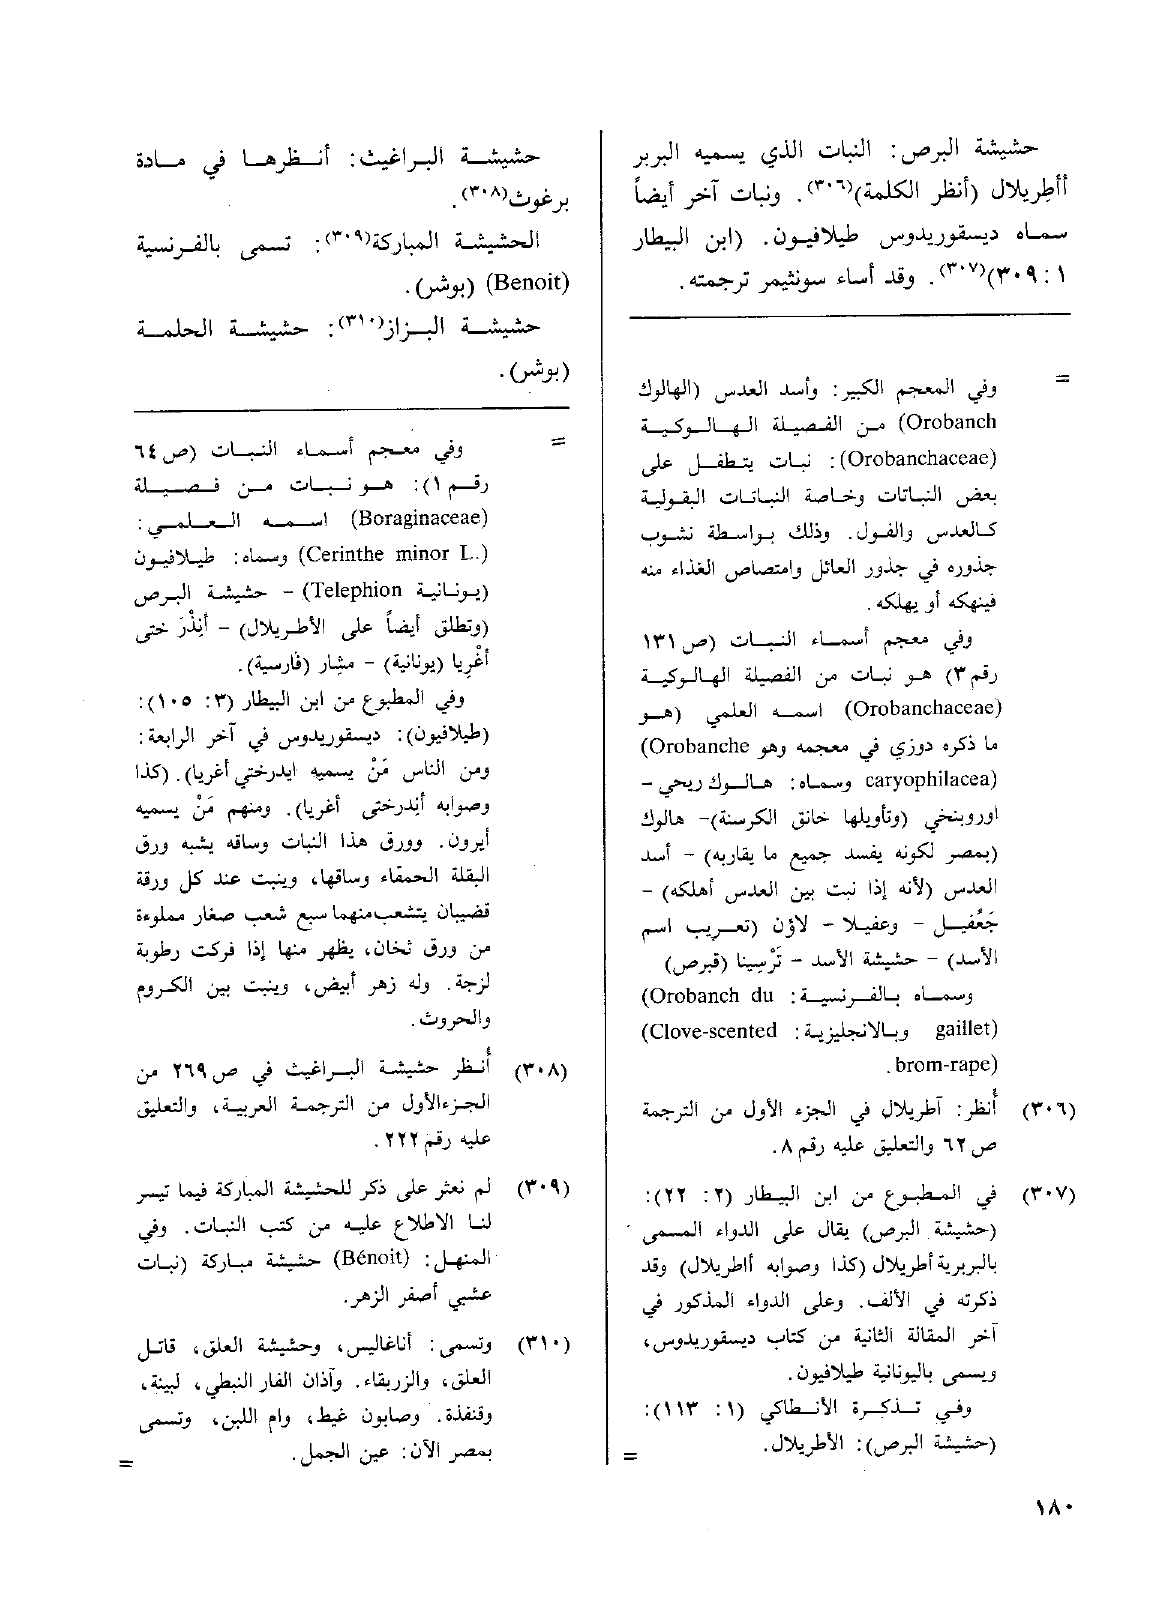 حشيشة البرص: النبات الذي يسميه البربر
أأطريلال (أنظر الكلمة)(٣٠٦). ونبات آخر أيضاً
سماه ديسقوريدوس طيلافيون. (ابن البيطار
١: ٣٠٩)(٣٠٧). وقد أساء سونثيمر ترجمته.
= وفي المعجم الكبير: وأسد العدس (الهالوك
Orobanch) من الفصيلة الهالوكية
(Orobanchaceae): نبات يتطفل على
بعض النباتات وخاصة النباتات البقولية
كالعدس والفول. وذلك بواسطة نشوب
جذوره في جذور العائل وامتصاص الغذاء منه
فينهكه أو يهلكه.
وفي معجم أسماء النبات (ص ١٣١
رقم ٣) هو نبات من الفصيلة الهالوكية
(Orobanchaceae) اسمه العلمي (هو
ما ذكره دوزي في معجمه وهو Orobanche)
caryophilacea) وسماه: هالوك ريحي -
اوروبنخي (وتأويلها خانق الكرسنة)- هالوك
(بمصر لكونه يفسد جميع ما يقاربه) - أسد
العدس (لأنه إذا نبت بين العدس أهلكه) -
جَعْفيل - وعفيلا - لاؤن (تعريب اسم
الأسد) - حشيشة الأسد - تَرْسِينا (قبرص)
وسماه بالفرنسية: Orobanch du)
gaillet) وبالانجليزية: Clove-scented)
brom-rape).
(٣٠٦) أُنظر: آطريلال في الجزء الأول من الترجمة
ص ٦٢ والتعليق عليه رقم ٨.
(٣٠٧) في المطبوع من ابن البيطار (٢: ٢٢):
(حشيشة البرص) يقال على الدواء المسمى
بالبربرية أطريلال (كذا وصوابه أاطريلال) وقد
ذكرته في الألف. وعلى الدواء المذكور في
آخر المقالة الثانية من كتاب ديسقوريدوس،
ويسمى باليونانية طيلافيون.
وفي تذكرة الأنطاكي (١: ١١٣):
(حشيشة البرص): الأطريلال. =
حشيشة البراغيث: أنظرها في مادة
برغوث(٣٠٨).
الحشيشة المباركة(٣٠٩): تسمى بالفرنسية
(Benoit) (بوشر).
حشيشة البزاز(٣١٠): حشيشة الحلمة
(بوشر).
= وفي معجم أسماء النبات (ص ٦٤
رقم ١): هو نبات من فصيلة
(Boraginaceae) اسمه العلمي:
(Cerinthe minor L.) وسماه: طيلافيون
(يونانية Telephion) - حشيشة البرص
(وتطلق أيضاً على الأطريلال) - أَنِذْرَ ختى
أغْريا (يونانية) - مشار (فارسية).
وفي المطبوع من ابن البيطار (٣: ١٠٥):
(طيلافيون): ديسقوريدوس في آخر الرابعة:
ومن الناس مَنْ يسميه ايدرختي أغريا). (كذا
وصوابه أندرختى أغريا). ومنهم مَنْ يسميه
أيرون. وورق هذا النبات وساقه يشبه ورق
البقلة الحمقاء وساقها، وينبت عند كل ورقة
قضيبان يتشعب منهما سبع شعب صغار مملوءة
من ورق ثخان، يظهر منها إذا فركت رطوبة
لزجة. وله زهر أبيض، وينبت بين الكروم
والحروث.
(٣٠٨) أُنظر حشيشة البراغيث في ص ٢٦٩ من
الجزء الأول من الترجمة العربية، والتعليق
عليه رقم ٢٢٢.
(٣٠٩) لم نعثر على ذكر للحشيشة المباركة فيما تيسر
لنا الاطلاع عليه من كتب النبات. وفي
المنهل: (Bénoit) حشيشة مباركة (نبات
عشبي أصفر الزهر.
(٣١٠) وتسمى: أناغاليس، وحشيشة العلق، قاتل
العلق، والزريقاء. وآذان الفار النبطي، لبينة،
وقنفذة. وصابون غيط، وام اللبن، وتسمى
بمصر الآن: عين الجمل. =
١٨٠